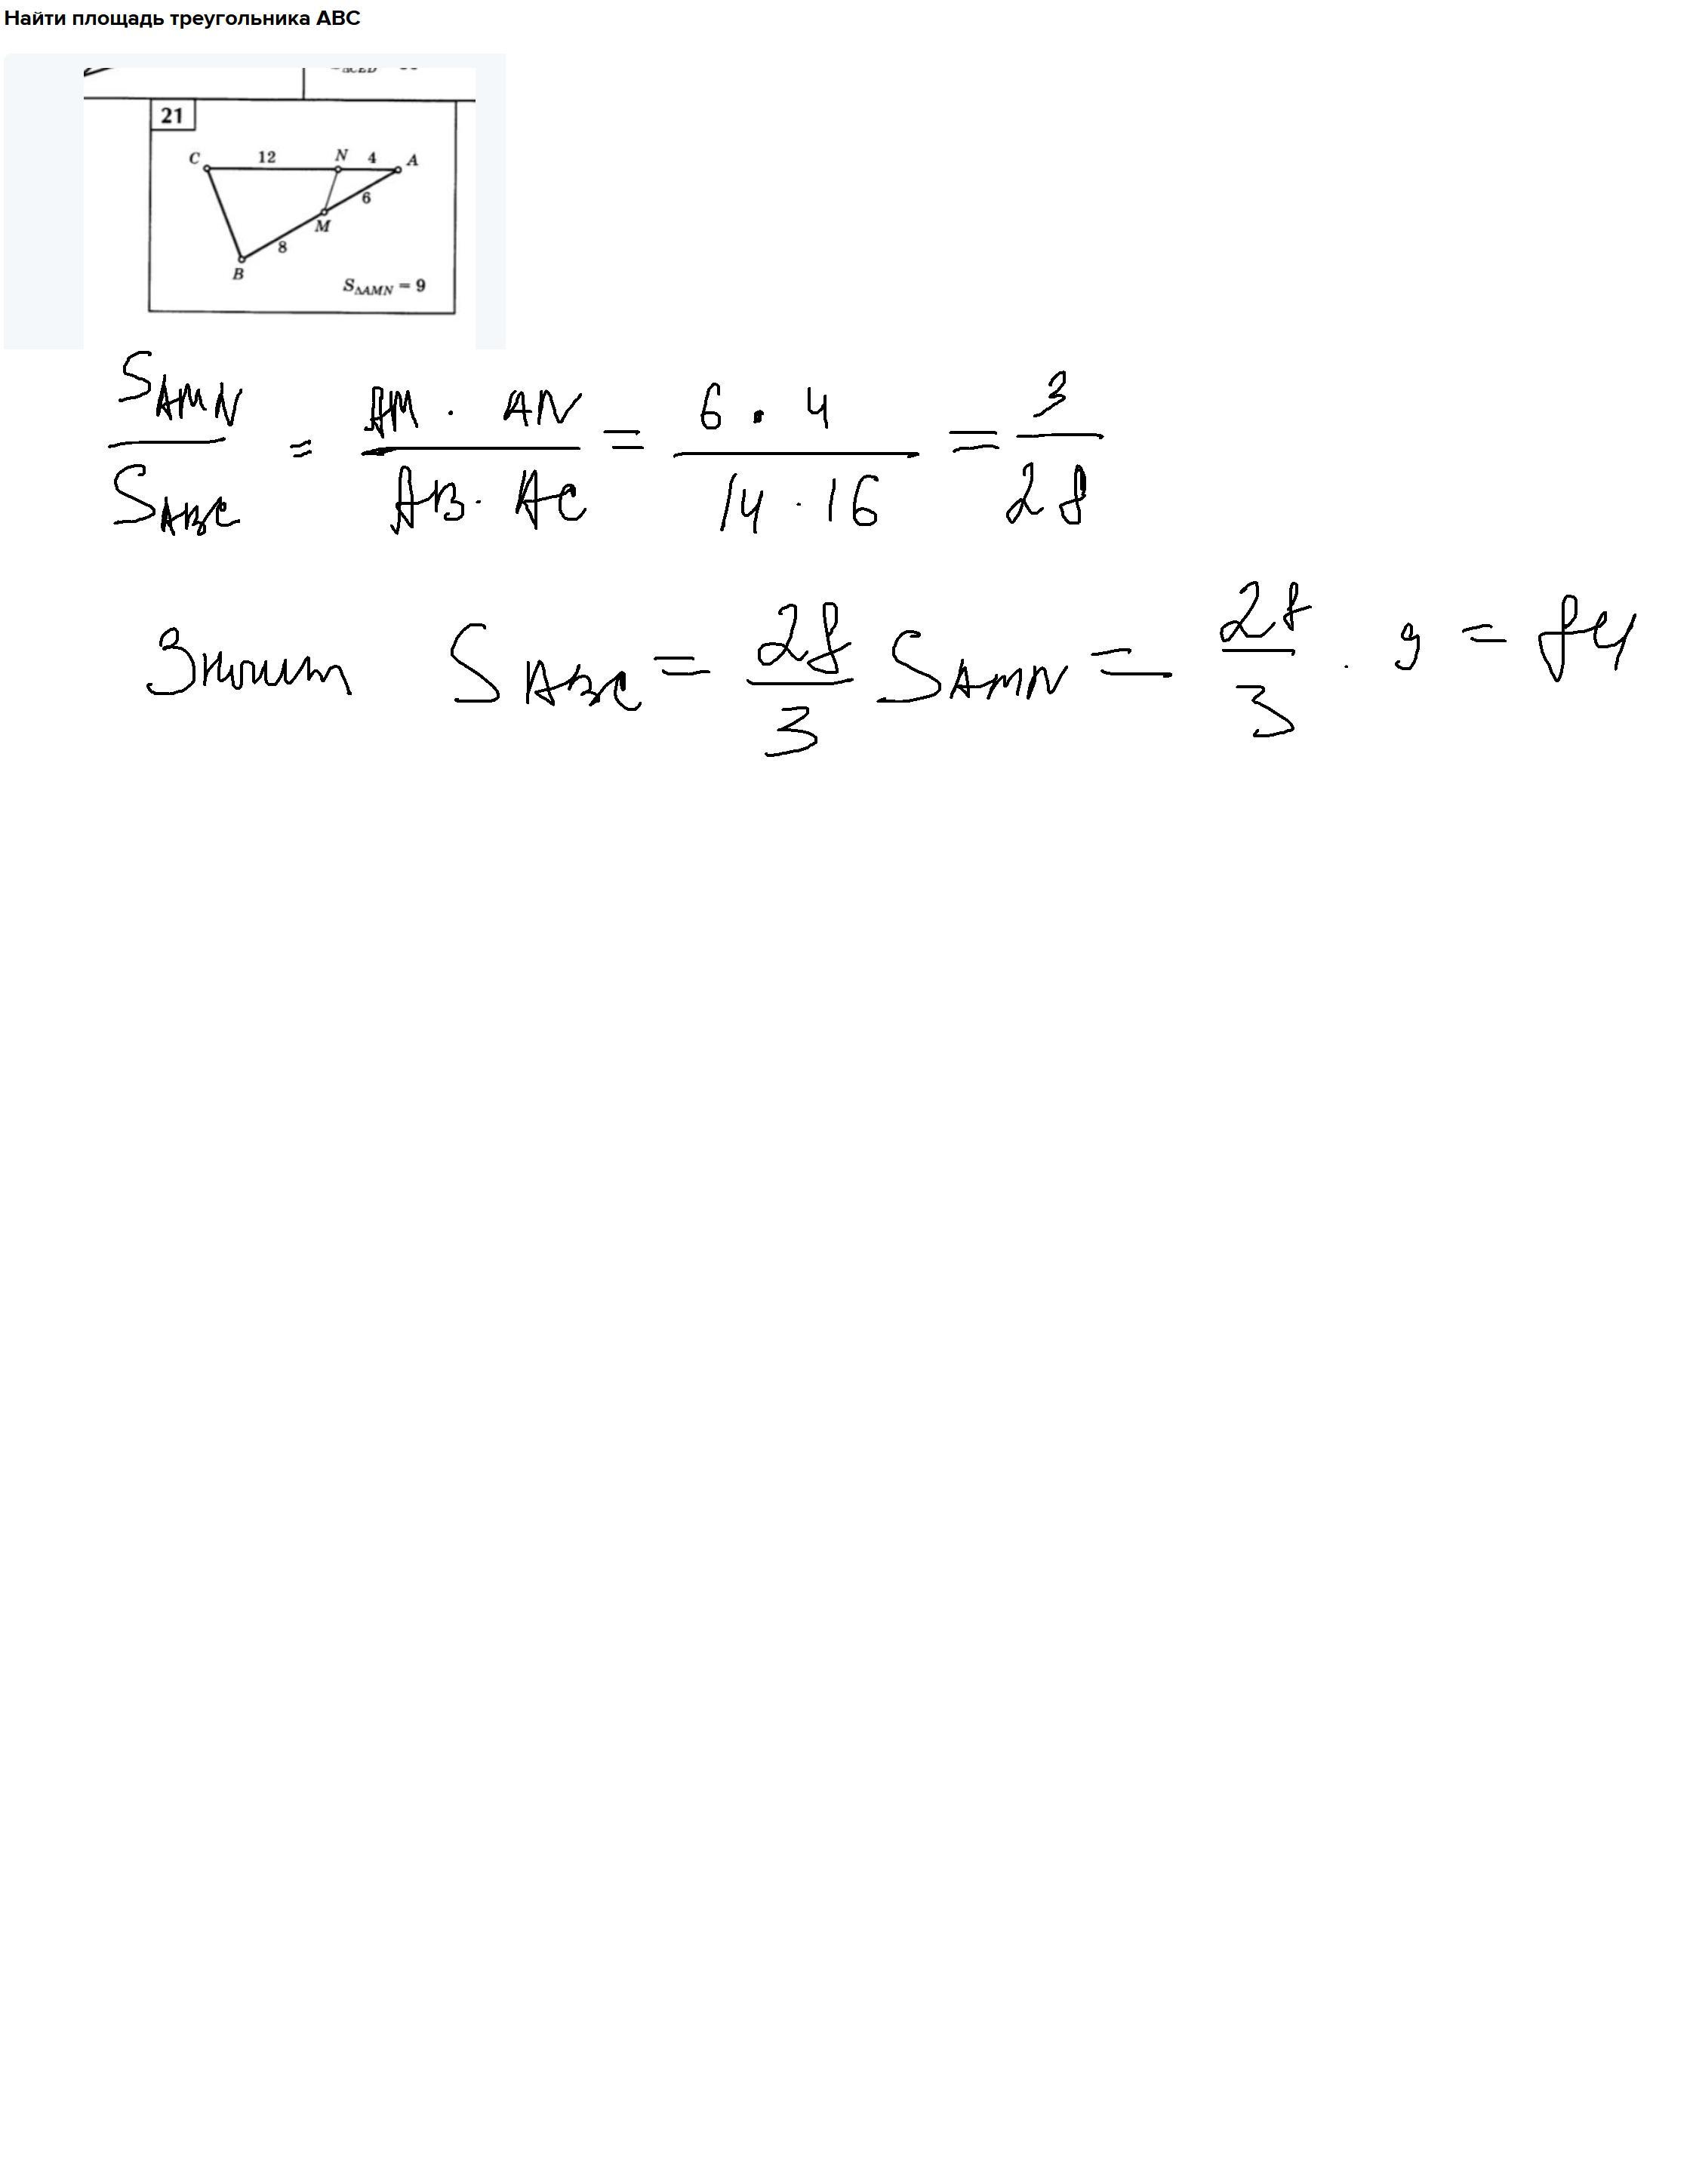 Найти площадь треугольника ABC
21
C 12 N 4 A
6
M
8
B
S△AMN = 9
S_AMN / S_ABC = AM · AN / AB · AC = 6 · 4 / 14 · 16 = 3 / 28
Значит S_ABC = 28/3 S_AMN = 28/3 · 9 = 84